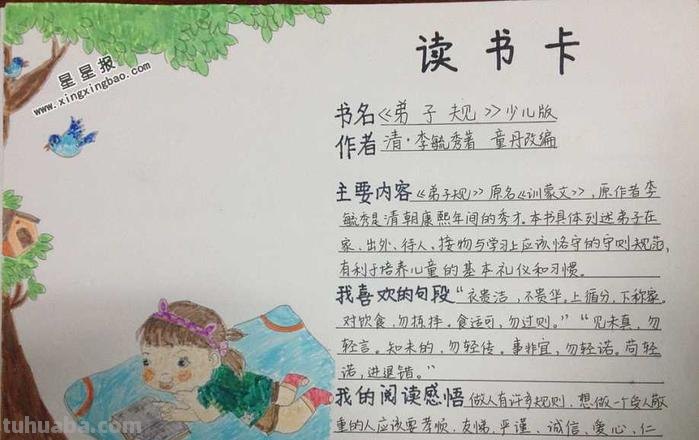 星星报
www.xingxingbao.com
读书卡
书名《弟子规》少儿版
作者 清·李毓秀著 童丹改编
主要内容《弟子规》原名《训蒙文》,原作者李
毓秀是清朝康熙年间的秀才。本书具体列述弟子在
家、出外、待人、接物与学习上应该恪守的守则规范,
有利于培养儿童的基本礼仪和习惯。
我喜欢的句段“衣贵洁,不贵华,上循分,下称家。
对饮食,勿拣择。食适可,勿过则。”“见未真,勿
轻言。知未的,勿轻传。事非宜,勿轻诺。苟轻
诺,进退错。”
我的阅读感悟 做人有许多规则,想做一个受人敬
重的人应该要孝顺、友悌、严谨、诚信、爱心、仁
tuhuaba.com